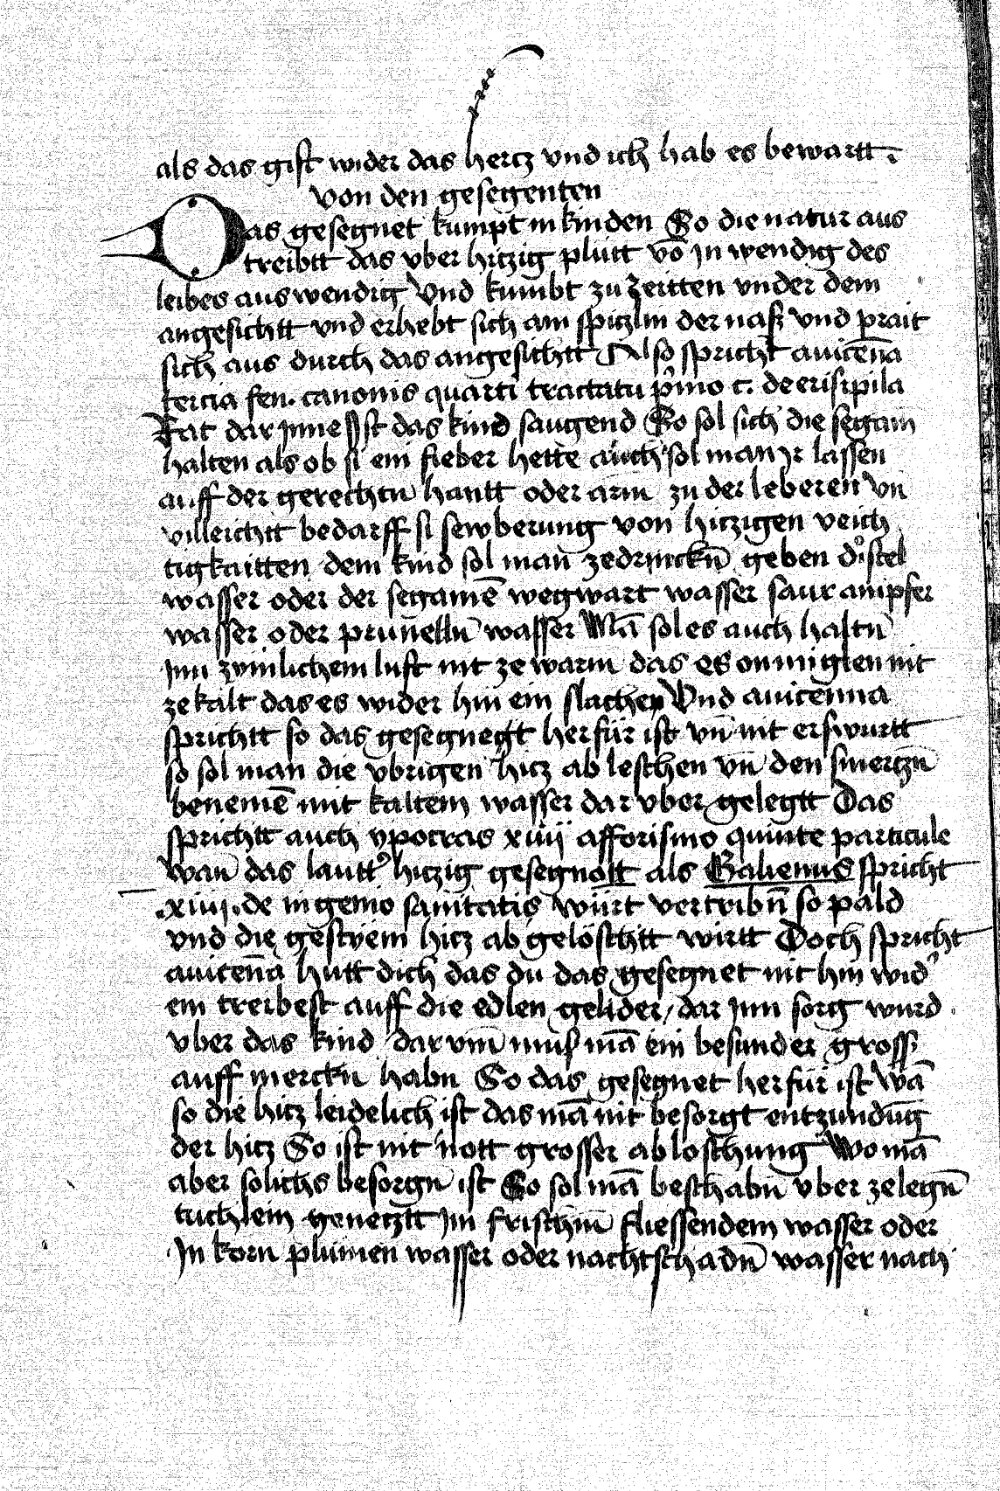 als das gift wider das hertz vnd ich hab es bewartt.
von den gesegenten
Das gesegnet kumpt in kinden So die natur aus
treibtt das vber hitzig plutt vō in wendig des
leibes aus wendig Vnd kumbt zu zeitten vnder dem
angesichtt vnd erhebt sich am spitzlin der nasz vnd prait
sich aus durch das angesichtt Also spricht auicēna
tercia fen. canonis quarti tractatu p̄mo c. de erisipila
Rat dar jnne Ist das kind saugend So sol sich die segam
halten als ob si ein fieber hette auch sol man jr lassen
auff der gerechtn̄ hantt oder arm zu der leberen vn̄
villeichtt bedarff si sewberung von hitzigen veich
tigkaitten dem kind sol man zedrinckn̄ geben distel
wasser oder der segamē wegwart wasser saur ampfer
wasser oder prunelln̄ wasser Mā sol es auch haltn̄
jnn zymlichem luft nit ze warm das es onmigten nit
ze kalt das es wider hin ein slachen Vnd auicenna
sprichtt so das gesegnegt herfür ist vn̄ nit erswurtt
so sol man die vbrigen hitz ab leschen vn̄ den smertzn̄
benemē mit kaltem wasser dar vber gelegtt Das
sprichtt auch ypocras xiiij afforismo quinte particule
wan̄ das lautt' hitzig gesegnott als Galienus spricht
.xiiij. de ingenio sanitatis würt vertribn̄ so pald
vnd die gestyem hitz ab gelöschtt wirtt Doch spricht
auicēna hutt dich das du das gesegnet nit hin wid'
ein treibest auff die edlen gelider, dar jnn sorg wurd.
vber das kind dar vm̄ mus mā ein besunder gross
auff merckn̄ habn̄ So das gesegnet herfür ist wā
so die hitz leidelich ist das mā nit besorgt entzundūg
der hitz So ist nit nott grosser ab loschung Wo mā
aber solichs besorgn̄ ist So sol mā beschabn̄ vber zelegn̄
tuchlein genetztt Im frischm̄ fliessendem wasser oder
In korn plumen wasser oder nachtschadn̄ wasser nach